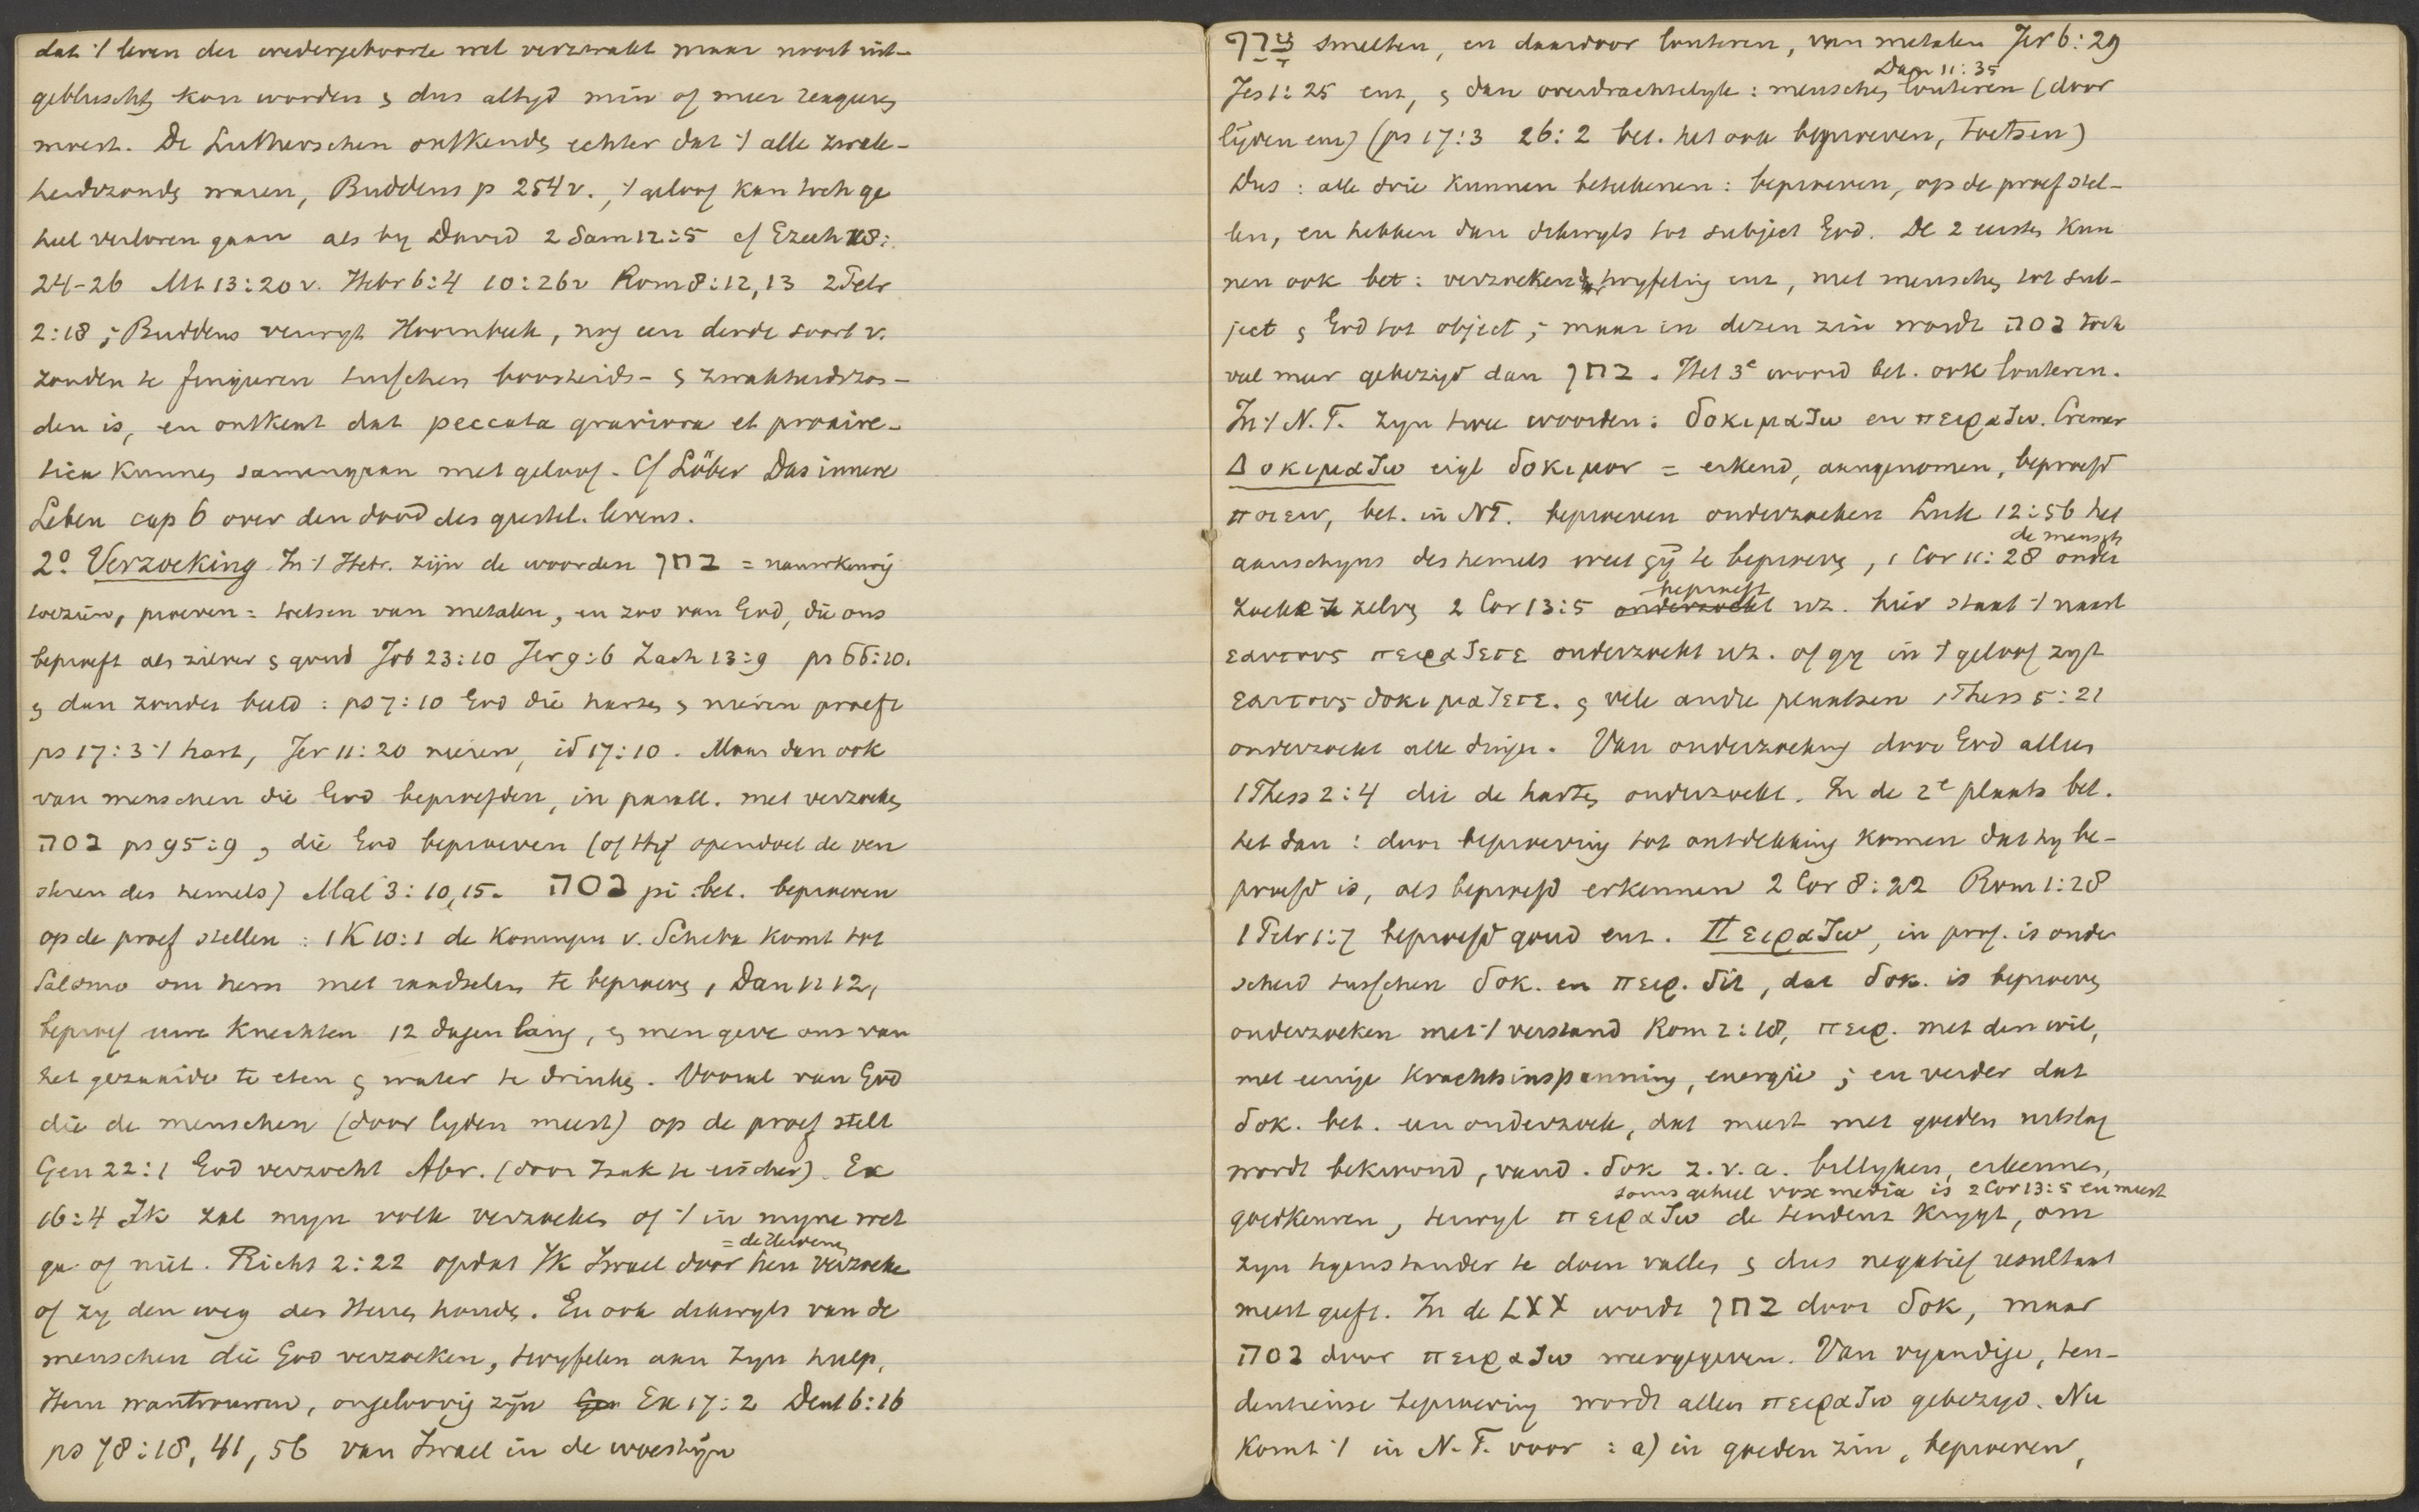 dat 't leven der wedergeboorte wel verzwakt maar nooit uit-
gebluscht kan worden & dus altijd min of meer reageren
moest. De Lutherschen ontkenden echter dat 't alle zwak-
heidszonden waren, Buddeus p 254v., 't geloof kan toch ge
heel verloren gaan als by David 2 Sam 12:5 cf Ezech 18:
24-26 Mt 13:20v. Hebr 6:4 10:26v Rom 8:12,13 2 Petr
2:18; Buddeus verwijt Hoornbeek, nog een derde soort v.
zonden te fingeeren tusschen boosheids- & zwakheidszon-
den is, en ontkent dat peccata graviora et proaire-
tica kunnen samengaan met geloof. Cf Löber Das innere
Leben cap 6 over den dood des geestel. levens.
2° Verzoeking In 't Hebr. zijn de woorden בחן = nauwkeurig
toezien, proeven = toetsen van metalen, en zoo van God, die ons
beproeft als zilver & goud Job 23:10 Jer 9:6 Zach 13:9 ps 66:10.
& dan zonder beeld: ps 7:10 God die harten & nieren proeft
ps 17:3 't hart, Jer 11:20 nieren, id 17:10. Maar dan ook
van menschen die God beproefden, in parall. met verzoeken
נסה ps 95:9, die God beproeven (of Hij opendoet de ven
steren des hemels) Mal 3:10,15. נסה pi. bet. beproeven
op de proef stellen: 1 K 10:1 de Koningin v. Scheba komt tot
Salomo om hem met raadselen te beproeven, Dan 1: 12,
beproef uwe knechten 12 dagen lang, & men geve ons van
het gezaaide te eten & water te drinken. Vooral van God
die de menschen (door lijden meest) op de proef stelt
Gen 22:1 God verzocht Abr. (door Izak te eischen). Ex
16:4 Ik zal mijn volk verzoeken of 't in mijne wet
= de Heidenen
ga of niet. Richt 2:22 opdat Ik Israel door hen verzoeke
of zy den weg des Heeren houden. En ook dikwyls van de
menschen die God verzoeken, twyfelen aan Zijn hulp,
Hem wantrouwen, ongeloovig zijn Ex 17:2 Deut 6:16
ps 78:18, 41, 56 van Israel in de woestijn
צרף smelten, en daardoor louteren, van metalen Jer 6:29
Dan 11:35
Jes 1:25 enz, & dan overdrachtelyk: menschen louteren (door
lijden enz) (ps 17:3 26:2 bet. het ook beproeven, toetsen)
Dus: alle drie kunnen beteekenen: beproeven, op de proef stel-
len, en hebben dan dikwyls tot subject God. De 2 eersten kun
nen ook bet: verzoekend, twyfeling enz, met menschen tot sub-
ject & God tot object; maar in dezen zin wordt נסה toch
veel meer gebezigd dan בחן. Het 3e woord bet. ook louteren.
In 't N.T. zyn twee woorden: δοκιμαζω en πειραζω. Cremer
Δοκιμαζω eigl δοκιμον = erkend, aangenomen, beproefd
ποιειν, bet. in NT. beproeven onderzoeken Luk 12:56 het
de mensch
aanschyns des hemels weet gij te beproeven, 1 Cor 11:28 onder
beproeft
zoeke zelven 2 Cor 13:5 onderzoekt uz. hier staat 't naast
εαυτους πειραζετε onderzoekt uz. of gy in 't geloof zyt
εαυτους δοκιμαζετε. & vele andre plaatsen 1 Thess 5:21
onderzoekt alle dingen. Van onderzoeking door God alleen
1 Thess 2:4 die de harten onderzoekt. In de 2e plaats bet.
het dan: door beproeving tot ontdekking komen dat hy be-
proefd is, als beproefd erkennen 2 Cor 8:22 Rom 1:28
1 Petr 1:7 beproefd goud enz. Πειραζω, in prof. is onder
scheid tusschen δοκ. en πειρ. dit, dat δοκ. is beproeven
onderzoeken met 't verstand Rom 2:18, πειρ. met den wil,
met eenige krachtsinspanning, energie; en verder dat
δοκ. bet. een onderzoek, dat meest met goeden uitslag
wordt bekroond, vand. δοκ z.v.a. billyken, erkennen,
soms geheel vox media is 2 Cor 13:5 en meest
goedkeuren, terwyl πειραζω de tendenz krygt, om
zyn tegenstander te doen vallen & dus negatief resultaat
meest geeft. In de LXX wordt בחן door δοκ, maar
נסה door πειραζω weergegeven. Van vyandige, ten-
dentieuse beproeving wordt alleen πειραζω gebezigd. Nu
komt 't in N.T. voor: a) in goeden zin, beproeven,